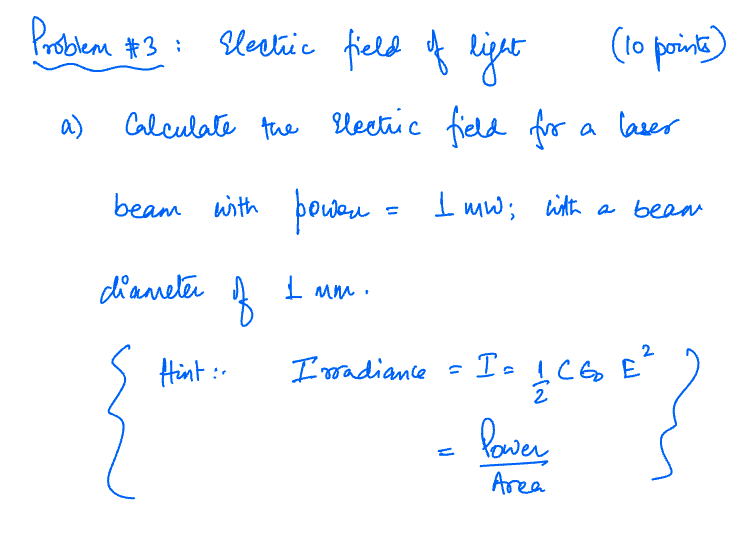 Problem #3 : Electric field of light (10 points)
a) Calculate the Electric field for a laser
beam with power = 1 mW; with a beam
diameter of 1 mm.
{ Hint :- Irradiance = I = 1/2 C ε₀ E² }
= Power/Area